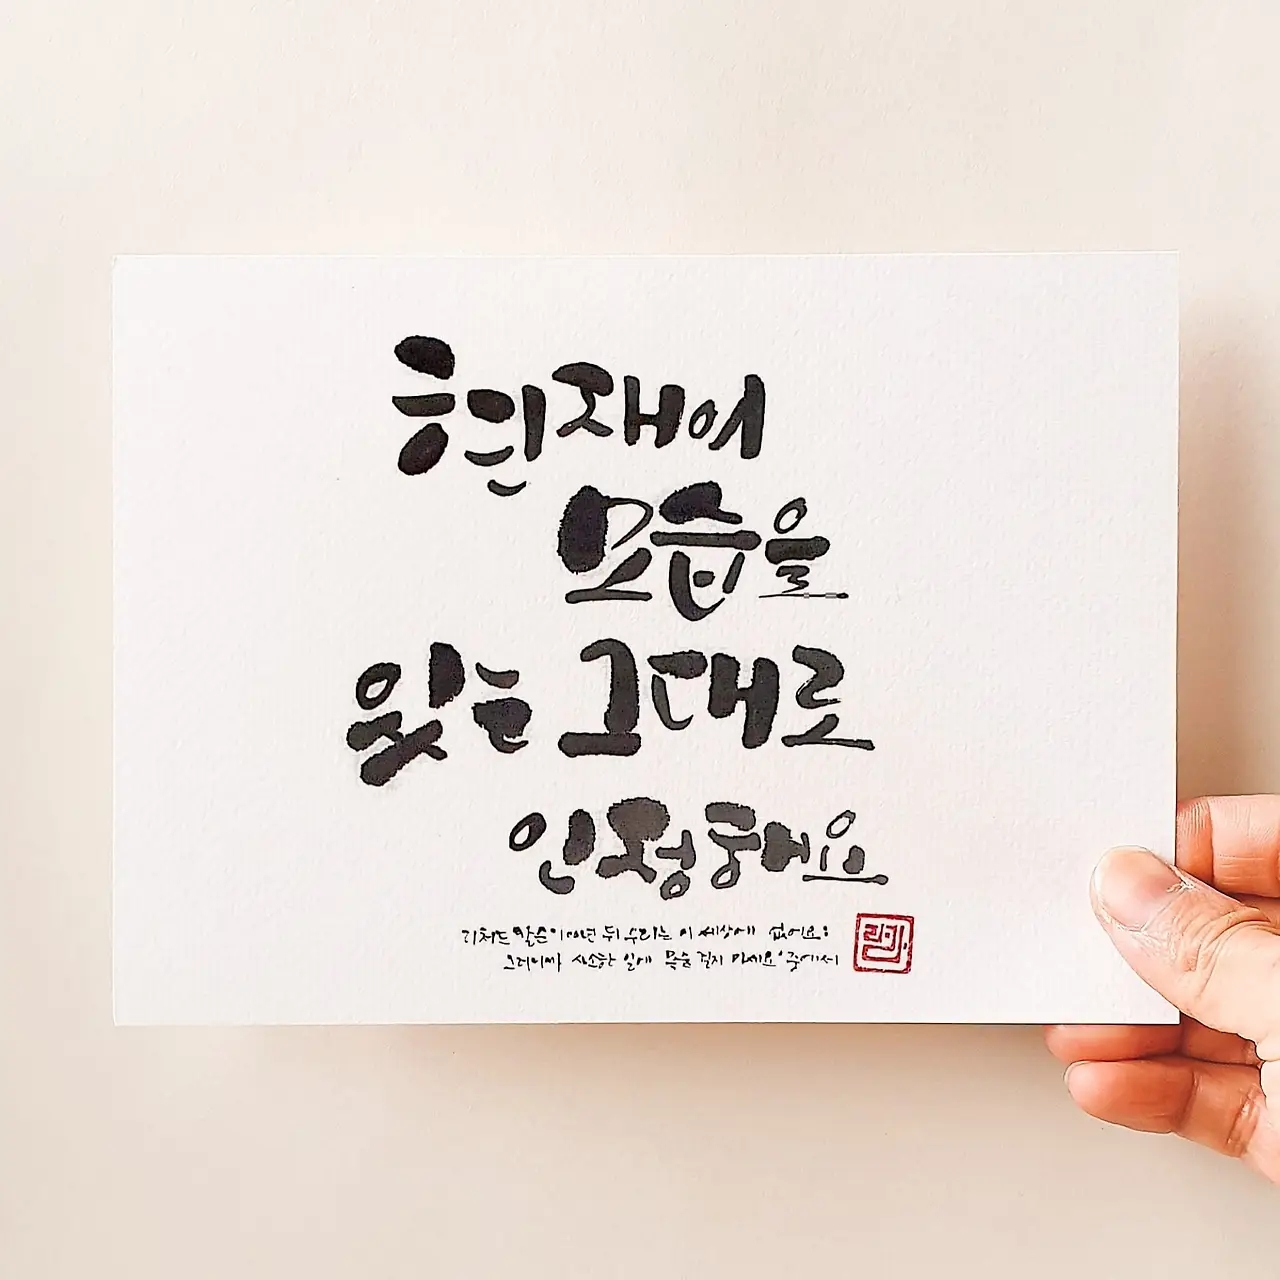 현재의
모습을
있는 그대로
인정해요
리처드 칼슨 '100년 뒤 우리는 이 세상에 없어요:
그러니까 사소한 일에 목숨 걸지 마세요' 중에서